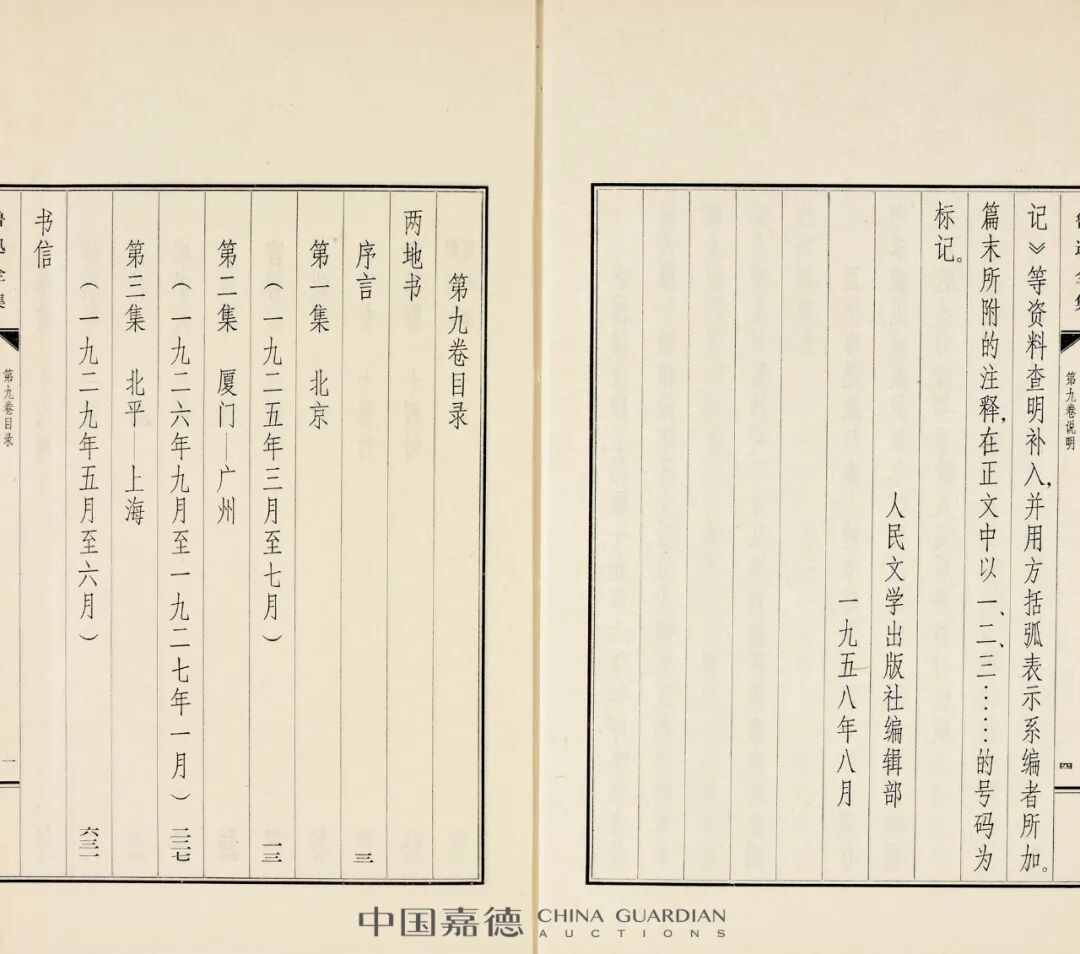 记》等资料查明补入，并用方括弧表示系编者所加。
篇末所附的注释，在正文中以一、二、三……的号码为
标记。
人民文学出版社编辑部
一九五八年八月
第九卷说明
四
第九卷目录
两地书
序言 三
第一集 北京
（一九二五年三月至七月） 一三
第二集 厦门—广州
（一九二六年九月至一九二七年一月） 二二七
第三集 北平—上海
（一九二九年五月至六月） 六三一
书信
鲁迅全集
第九卷目录
一
中国嘉德 CHINA GUARDIAN
AUCTIONS